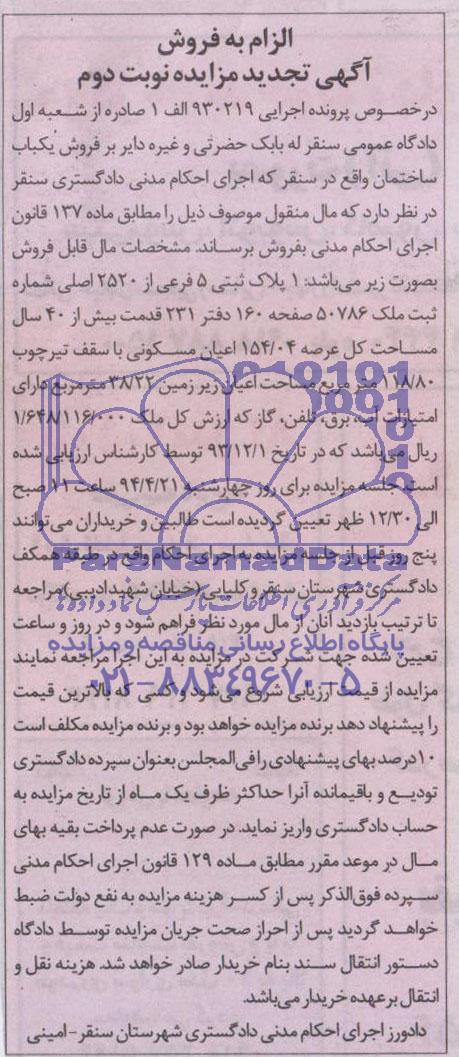 الزام به فروش
آگهی تجدید مزایده نوبت دوم
درخصوص پرونده اجرایی ۹۳۰۲۱۹ الف ۱ صادره از شعبه اول
دادگاه عمومی سنقر له بابک حضرتی و غیره دایر بر فروش یکباب
ساختمان واقع در سنقر که اجرای احکام مدنی دادگستری سنقر
در نظر دارد که مال منقول موصوف ذیل را مطابق ماده ۱۳۷ قانون
اجرای احکام مدنی بفروش برساند. مشخصات مال قابل فروش
بصورت زیر می‌باشد: ۱ پلاک ثبتی ۵ فرعی از ۲۵۲۰ اصلی شماره
ثبت ملک ۵۰۷۸۶ صفحه ۱۶۰ دفتر ۲۳۱ قدمت بیش از ۴۰ سال
مساحت کل عرصه ۱۵۴/۰۴ اعیان مسکونی با سقف تیرچوب
۱۱۸/۸۰ متر مربع مساحت اعیان زیر زمین ۳۸/۲۲ مترمربع دارای
امتیازات آب، برق، تلفن، گاز که ارزش کل ملک ۱/۶۴۸/۱۱۶/۰۰۰
ریال می‌باشد که در تاریخ ۹۳/۱۲/۱ توسط کارشناس ارزیابی شده
است. جلسه مزایده برای روز چهارشنبه ۹۴/۴/۲۱ ساعت ۱۱ صبح
الی ۱۲/۳۰ ظهر تعیین گردیده است طالبین و خریداران می‌توانند
پنج روز قبل از جلسه مزایده به اجرای احکام واقع در طبقه همکف
دادگستری شهرستان سنقر و کلیایی (خیابان شهید ادیبی) مراجعه
تا ترتیب بازدید آنان از مال مورد نظر فراهم شود و در روز و ساعت
تعیین شده جهت شرکت در مزایده به این اجرا مراجعه نمایند
مزایده از قیمت ارزیابی شروع می‌شود و کسی که بالاترین قیمت
را پیشنهاد دهد برنده مزایده خواهد بود و برنده مزایده مکلف است
۱۰درصد بهای پیشنهادی را فی‌المجلس بعنوان سپرده دادگستری
تودیع و باقیمانده آنرا حداکثر ظرف یک ماه از تاریخ مزایده به
حساب دادگستری واریز نماید. در صورت عدم پرداخت بقیه بهای
مال در موعد مقرر مطابق ماده ۱۲۹ قانون اجرای احکام مدنی
سپرده فوق‌الذکر پس از کسر هزینه مزایده به نفع دولت ضبط
خواهد گردید پس از احراز صحت جریان مزایده توسط دادگاه
دستور انتقال سند بنام خریدار صادر خواهد شد. هزینه نقل و
انتقال برعهده خریدار می‌باشد.
دادورز اجرای احکام مدنی دادگستری شهرستان سنقر - امینی
ParsNamadData
مرکز فرآوری اطلاعات پارس نماد داده‌ها
پایگاه اطلاع رسانی مناقصه و مزایده
۰۲۱-۸۸۳۴۹۶۷۰-۵